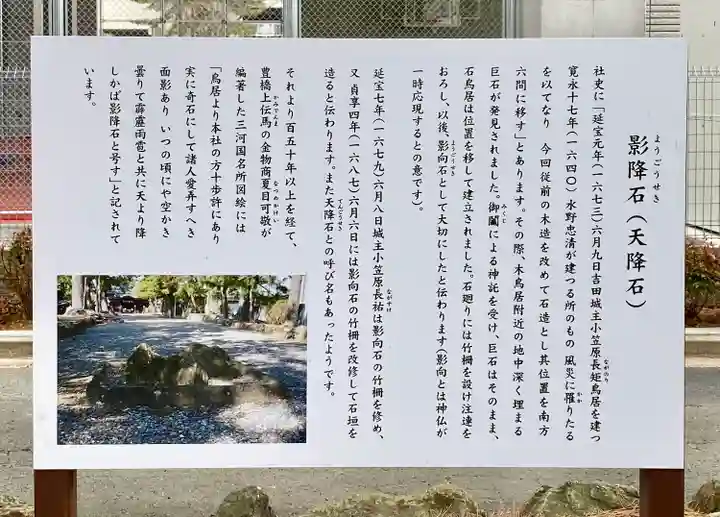 ようごうせき
影降石(天降石)
社史に「延宝元年(一六七三)六月九日吉田城主小笠原長矩鳥居を建つ
ながのり
寛永十七年(一六四〇)水野忠清が建つる所のもの 風災に罹りたる
かか
を以てなり 今回従前の木造を改めて石造とし其位置を南方
六間に移す」とあります。その際、木鳥居附近の地中深く埋まる
巨石が発見されました。御鬮による神託を受け、巨石はそのまま、
みくじ
石鳥居は位置を移して建立されました。石廻りには竹柵を設け注連を
おろし、以後、影向石として大切にしたと伝わります(影向とは神仏が
ようごうせき
一時応現するとの意です)。
延宝七年(一六七九)六月八日城主小笠原長祐は影向石の竹柵を修め、
ながすけ
又 貞享四年(一六八七)六月六日には影向石の竹柵を改修して石垣を
造ると伝わります。また天降石との呼び名もあったようです。
てんごうせき
それより百五十年以上を経て、
豊橋上伝馬の金物商夏目可敬が
かみでんま
なつめかけい
編著した三河国名所図絵には
「鳥居より本社の方十歩許にあり
実に奇石にして諸人愛弄すべき
面影あり いつの頃にや空かき
曇りて霹靂雨雹と共に天より降
しかば影降石と号す」と記されて
います。